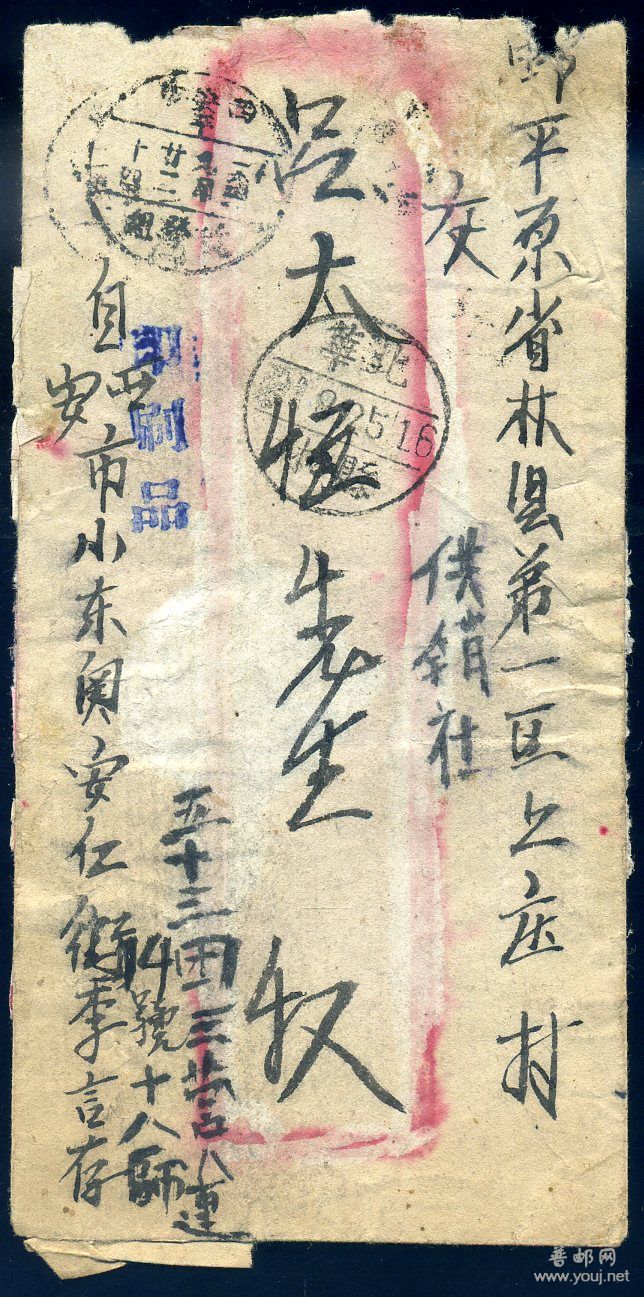 邮平原省林县第一区上庄村
交
供銷社
吕太恒先生收
五十三団三营八連
14號十八師
印刷品
自西安市小东関安仁街李言存
華北
8.25.16
林
縣
普邮网
www.youj.net